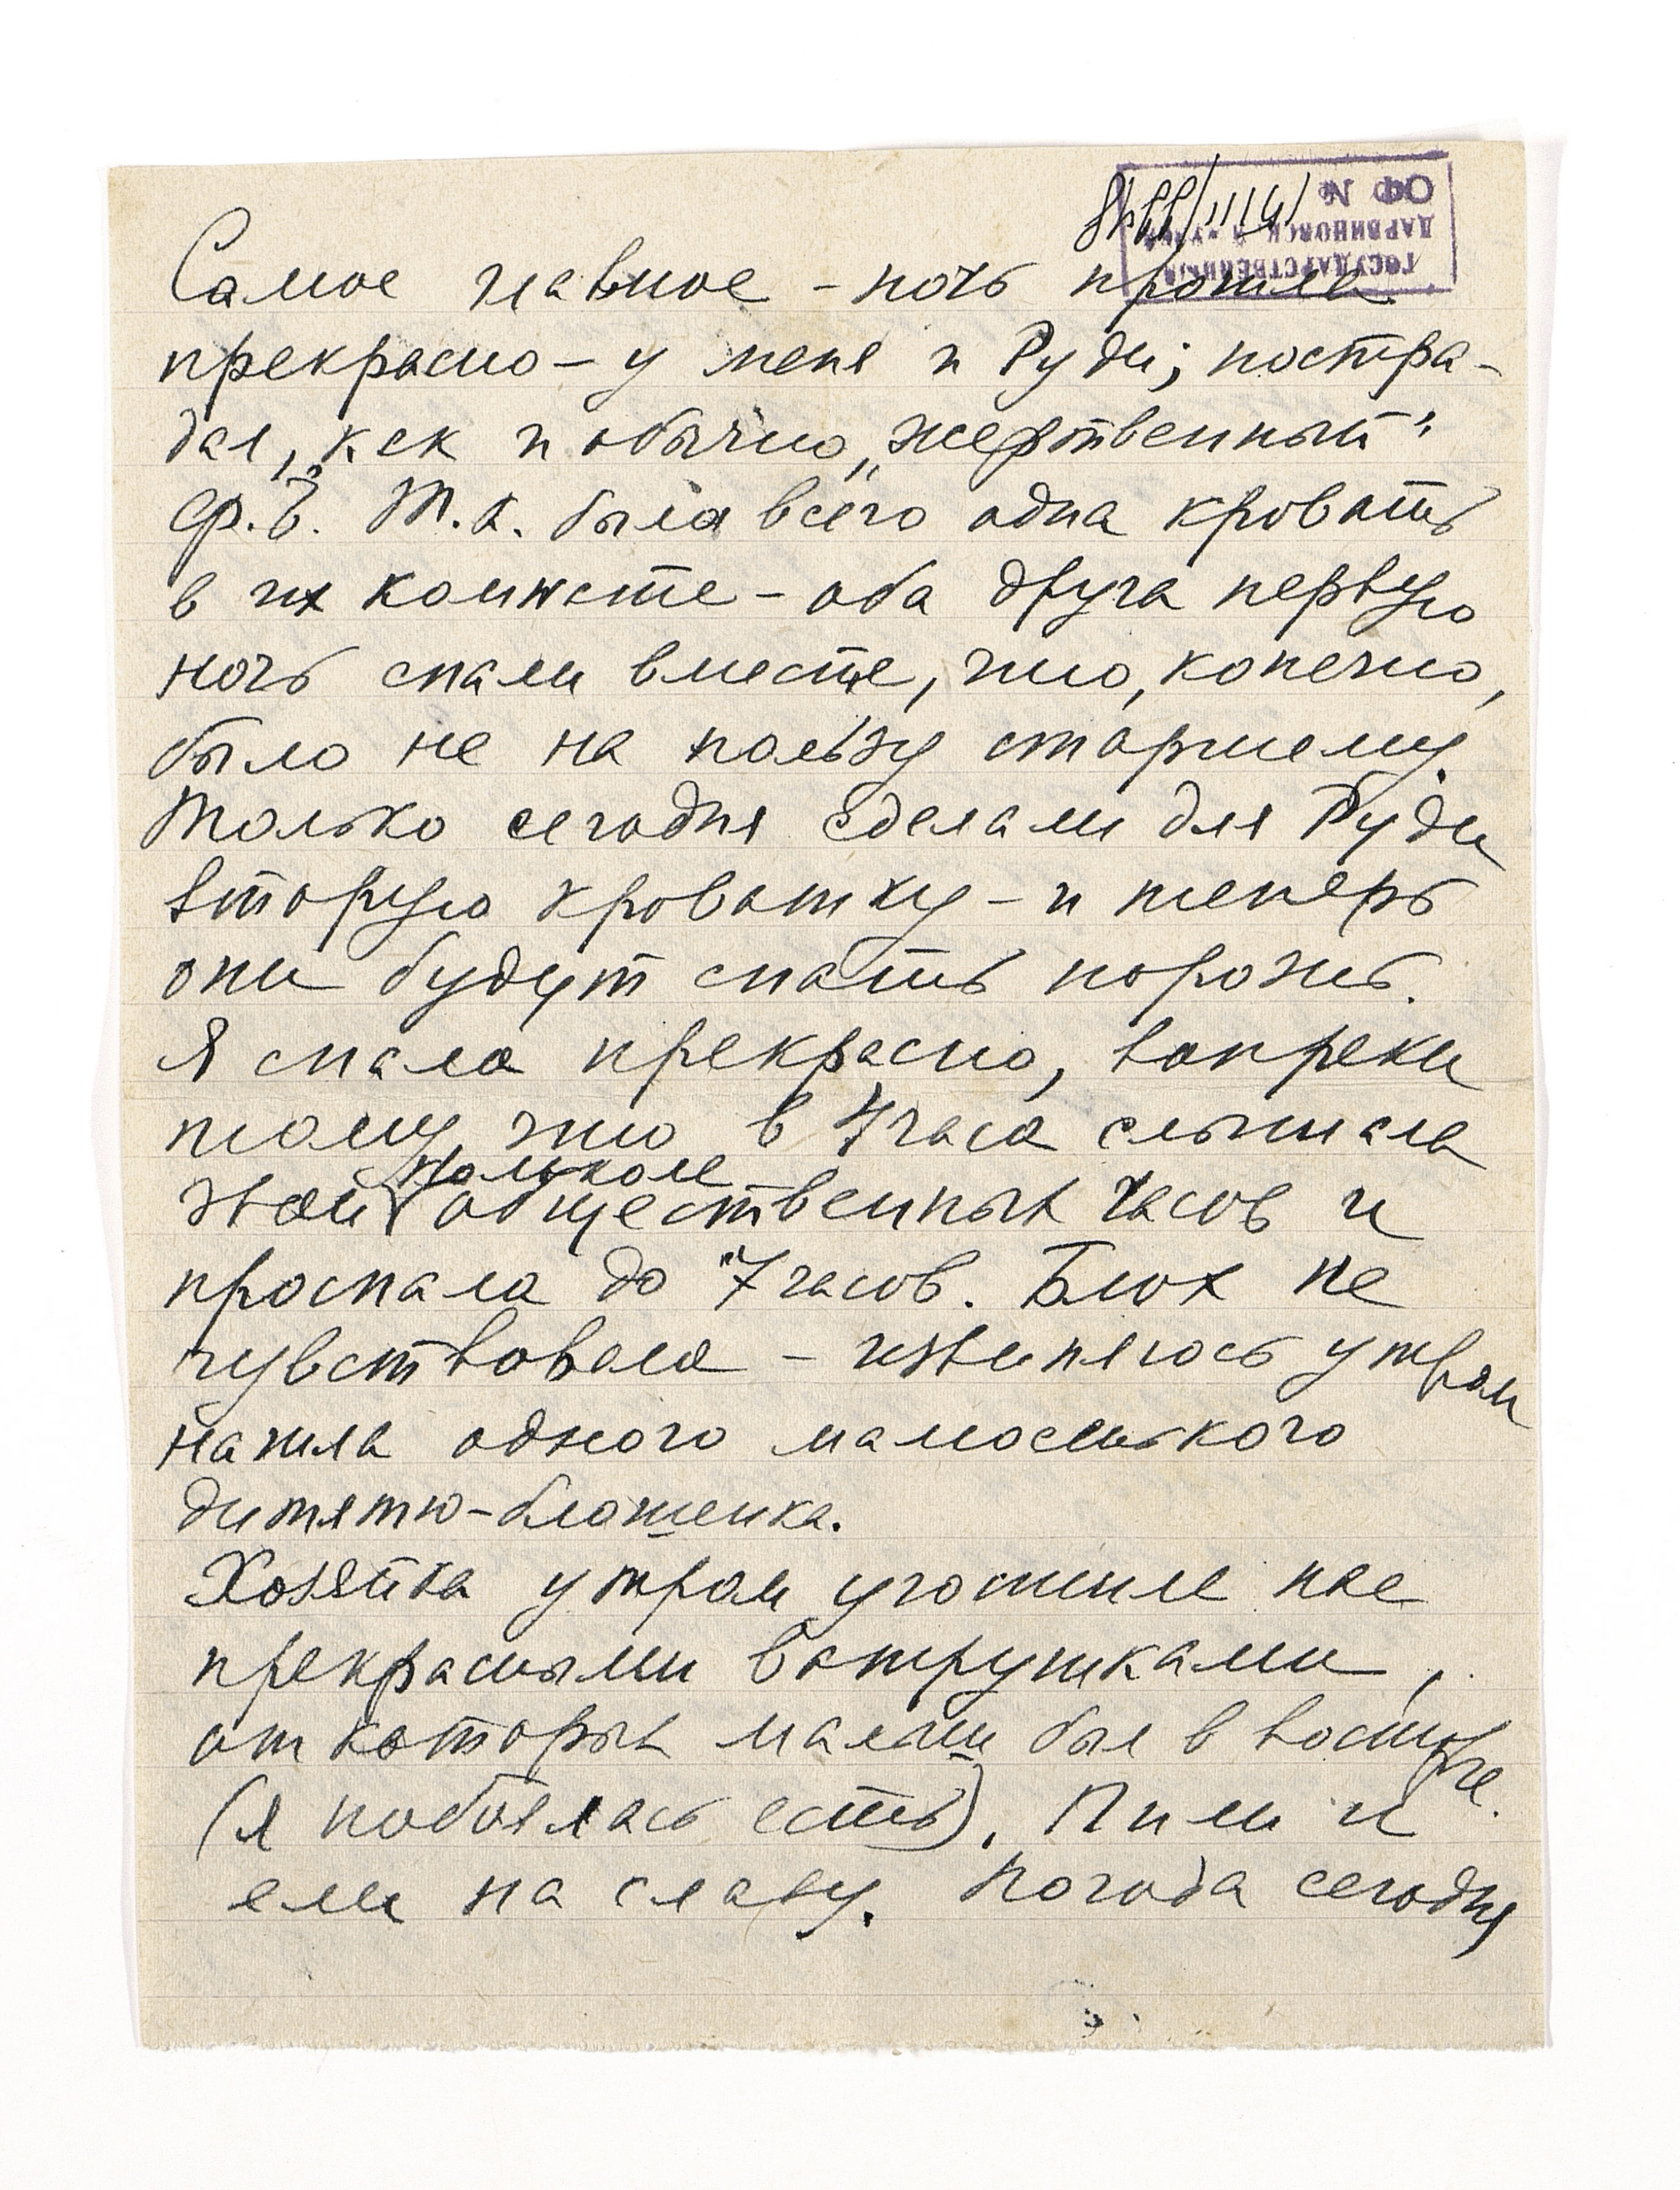 ГОСУДАРСТВЕННЫЙ
ДАРВИНОВСКИЙ МУЗЕЙ
ОФ №
Самое главное - ночь прошла
прекрасно - у меня и Руди; постра-
дал, как и обычно, „жертвенный"
Ф.Е. Т.к. была всего одна кровать
в их комнате - оба друга первую
ночь спали вместе, что, конечно,
было не на пользу старшему.
Только сегодня сделали для Руди
вторую кроватку - и теперь
они будут спать порознь.
Я спала прекрасно, вопреки
тому, что в 4 часа слышала
звон общественных часов и
проспала до 7 часов. Блох не
чувствовала - извиняюсь утром
нашла одного малюсенького
дитятю-блошенка.
Хозяйка утром угостила нас
прекрасными ватрушками,
от которых мальчик был в восторге.
(я побоялась есть). Пили и
ели на славу. Погода сегодня